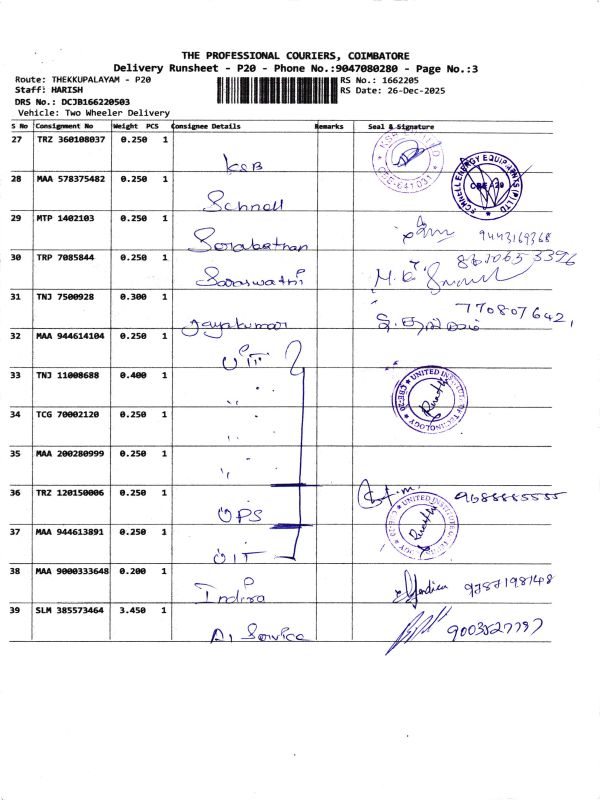 THE PROFESSIONAL COURIERS, COIMBATORE
Delivery Runsheet - P20 - Phone No.:9047080280 - Page No.:3
Route: THEKKUPALAYAM - P20 RS No.: 1662205
Staff: HARISH RS Date: 26-Dec-2025
DRS No.: DCJB166220503
Vehicle: Two Wheeler Delivery
S No Consignment No Weight PCS Consignee Details Remarks Seal & Signature
27 TRZ 360108037 0.250 1 KSB
28 MAA 578375482 0.250 1 Schnell SCHNELL ENERGY EQUIPMENTS (P) LTD CBE-20
29 MTP 1402103 0.250 1 9443169368
30 TRP 7085844 0.250 1 Saraswathi
31 TNJ 7500928 0.300 1 Jayakumar
32 MAA 944614104 0.250 1 UIT
33 TNJ 11008688 0.400 1 ,, UNITED INSTITUTE OF TECHNOLOGY CBE-20
34 TCG 70002120 0.250 1 ,,
35 MAA 200280999 0.250 1 ,,
36 TRZ 120150006 0.250 1 UPS
37 MAA 944613891 0.250 1 UIT
38 MAA 9000333648 0.200 1 Indira 9787198148
39 SLM 385573464 3.450 1 A1 Service